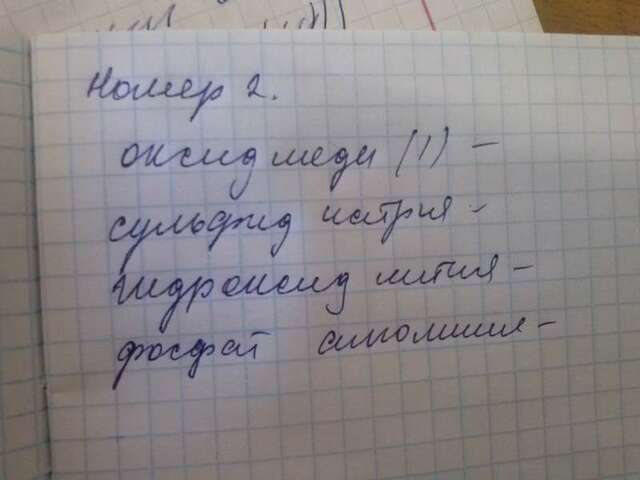 Номер 2.
оксид меди (I) -
сульфид натрия -
гидроксид лития -
фосфат алюминия -